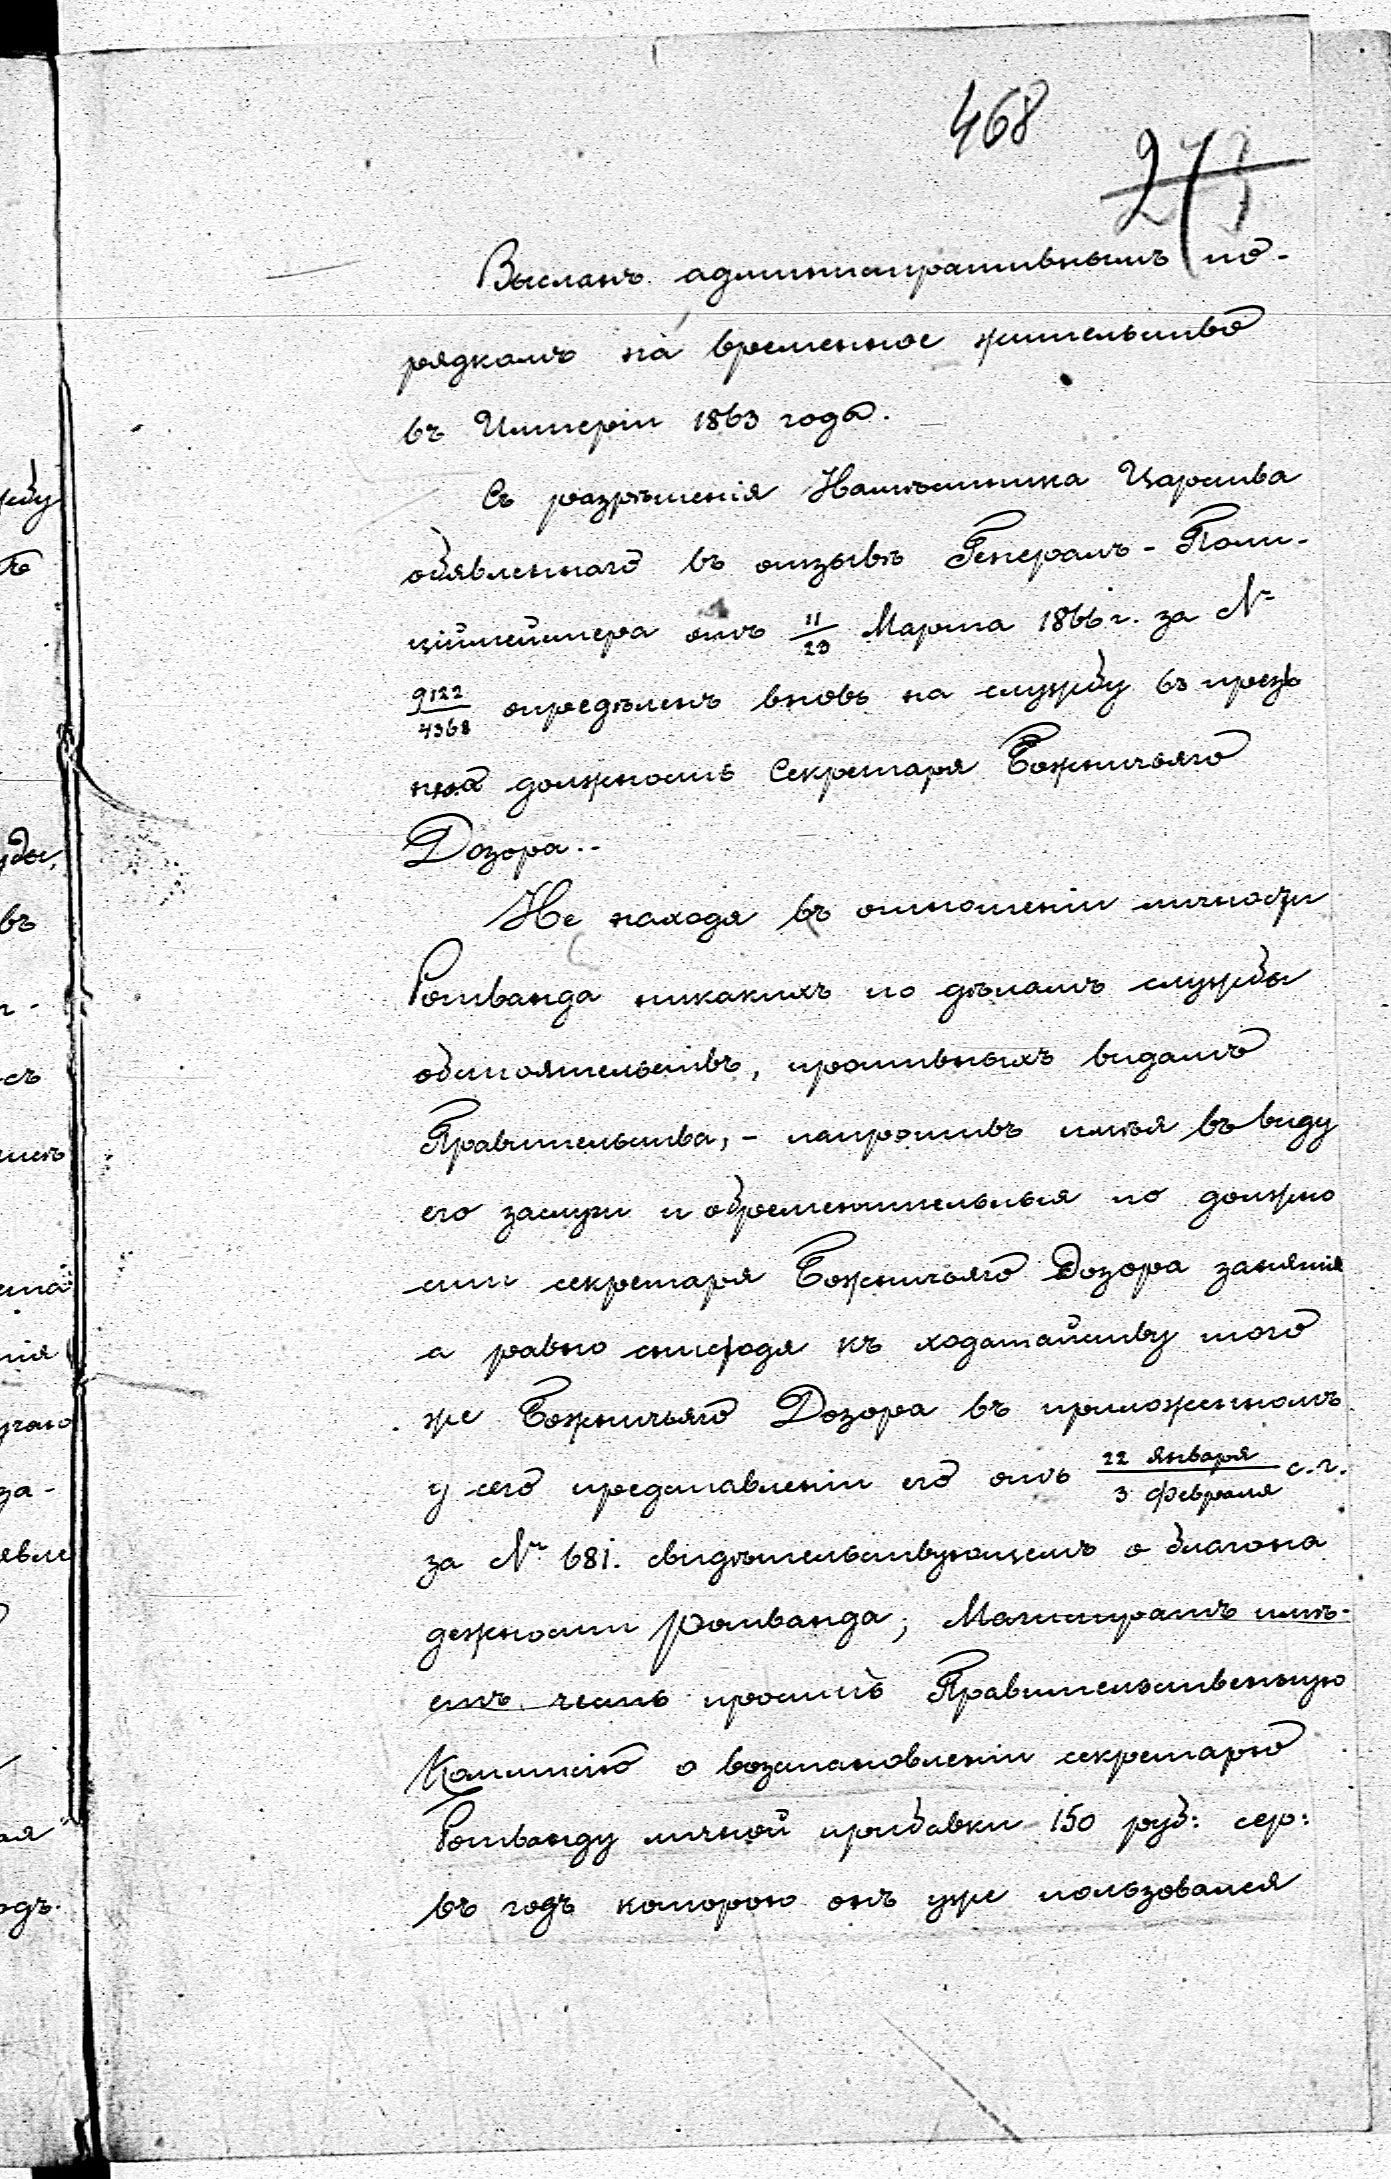 468
273
Высланъ административнымъ по-
рядкомъ на временное жительство
въ Имперіи 1863 года.
Съ разрѣшенія Намѣстника Царства
объявленнаго въ отзывѣ Генералъ-Поли-
ціймейстера отъ 11/23 Марта 1866 г. за №
9122/4368 опредѣленъ вновь на службу въ преж
нюю должность Секретаря Божничьяго
Дозора..
Не находя въ отношеніи личности
Ротванда никакихъ по дѣламъ службы
обстоятельствъ, противныхъ видамъ
Правительства, - напротивъ имѣя въ виду
его заслуги и обременительныя по должно
сти секретаря Божничьяго Дозора занятія
а равно снисходя къ ходатайству того
же Божничьяго Дозора въ приложенномъ
у сего представленіи его отъ 22 Января/3 Февраля с. г.
за № 681. свидѣтельствующемъ о благона
дежности Ротванда; Магистратъ имѣ-
етъ честь просить Правительственную
Коммисію о возстановленіи секретарю
Ротванду личной прибавки 150 руб: сер:
въ годъ которою онъ уже пользовался